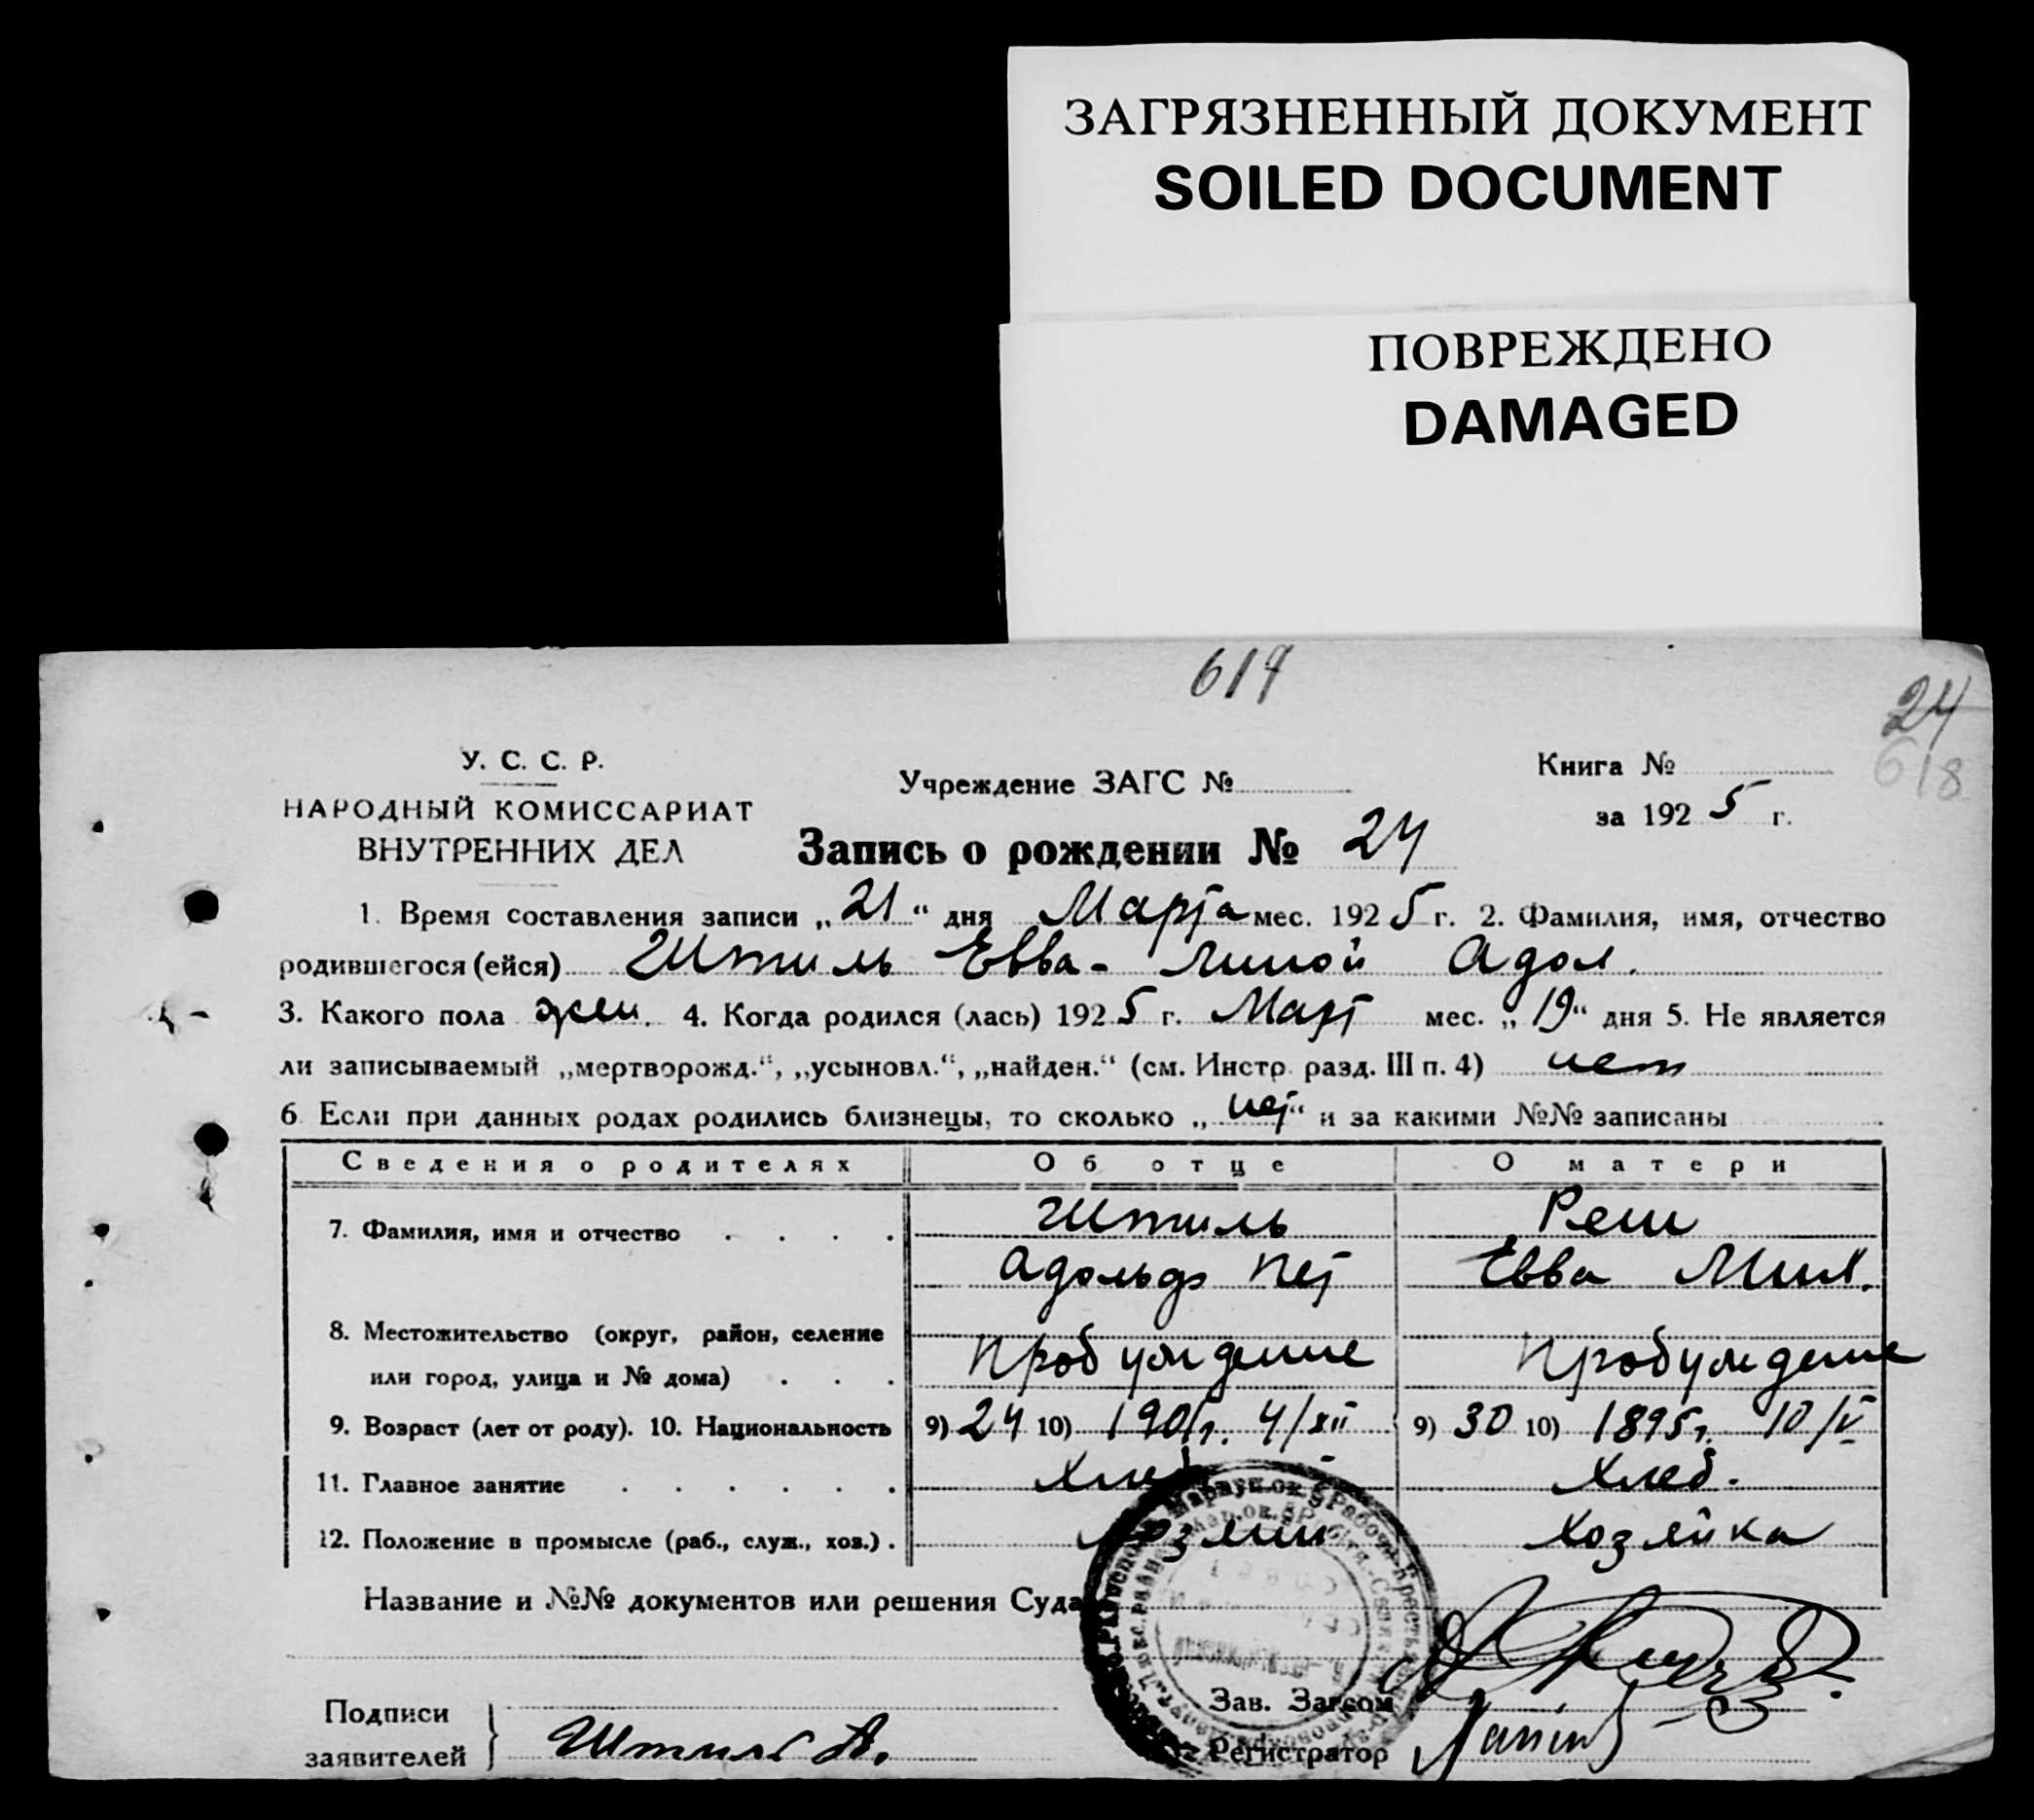 ЗАГРЯЗНЕННЫЙ ДОКУМЕНТ
SOILED DOCUMENT
ПОВРЕЖДЕНО
DAMAGED
619
24
618
У. С. С. Р.
НАРОДНЫЙ КОМИССАРИАТ
ВНУТРЕННИХ ДЕЛ
Учреждение ЗАГС №
Книга №
за 1925 г.
Запись о рождении № 24
1. Время составления записи „21“ дня Марта мес. 1925 г. 2. Фамилия, имя, отчество
родившегося (ейся) Штиль Евва- Линой Адол.
3. Какого пола жен. 4. Когда родился (лась) 1925 г. Март мес. „19“ дня 5. Не является
ли записываемый „мертворожд.“, „усыновл.“, „найден.“ (см. Инстр. разд. III п. 4) нет
6 Если при данных родах родились близнецы, то сколько „нет“ и за какими №№ записаны
Сведения о родителях Об отце О матери
7. Фамилия, имя и отчество Штиль Реш
Адольф Пет Евва Мих.
8. Местожительство (округ, район, селение
или город, улица и № дома) Пробуждение Пробуждение
9. Возраст (лет от роду). 10. Национальность 9) 24 10) 1901г. 4/XII 9) 30 10) 1895г. 10/V
11. Главное занятие Хлеб Хлеб.
12. Положение в промысле (раб., служ., хоз.) . Хозяин Хозяйка
Название и №№ документов или решения Суда
Подписи
заявителей } Штиль А.
Зав. Загсом
Регистратор